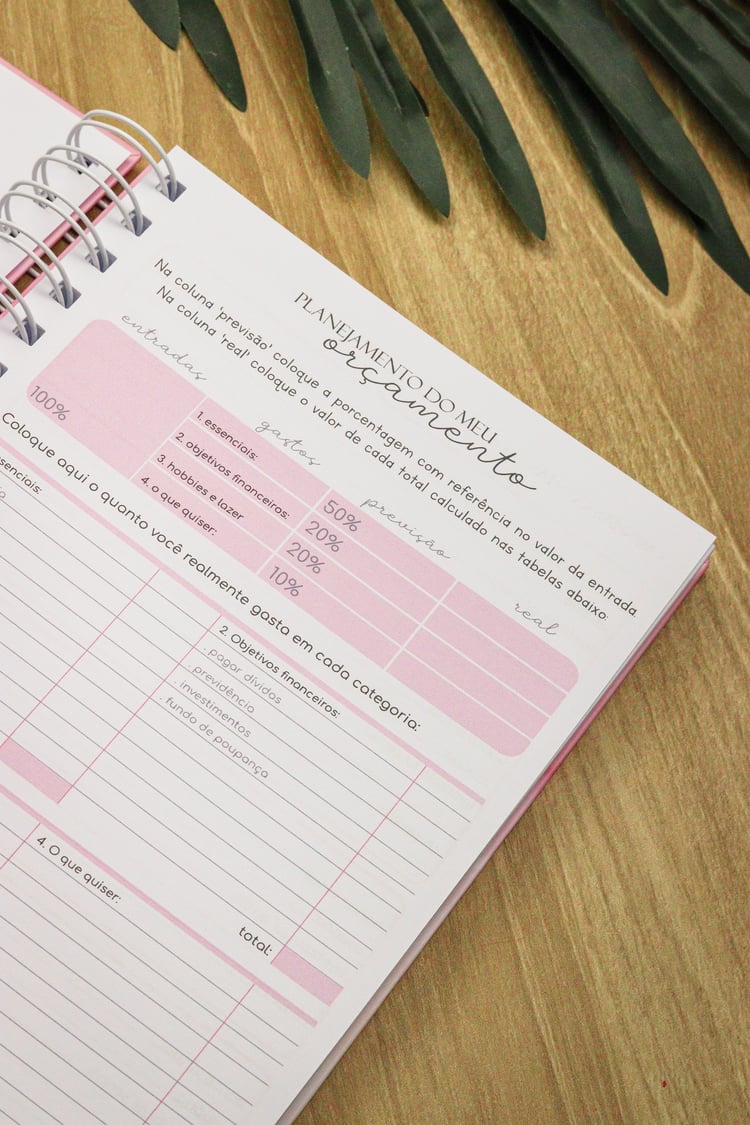 PLANEJAMENTO DO MEU
orçamento
Na coluna 'previsão' coloque a porcentagem com referência no valor da entrada.
Na coluna 'real' coloque o valor de cada total calculado nas tabelas abaixo:
entradas
gastos
previsão
real
100%
1. essenciais:
50%
2. objetivos financeiros:
20%
3. hobbies e lazer
20%
4. o que quiser:
10%
Coloque aqui o quanto você realmente gasta em cada categoria:
senciais:
2. Objetivos financeiros:
. pagar dívidas
. previdência
. investimentos
. fundo de poupança
total:
4. O que quiser: